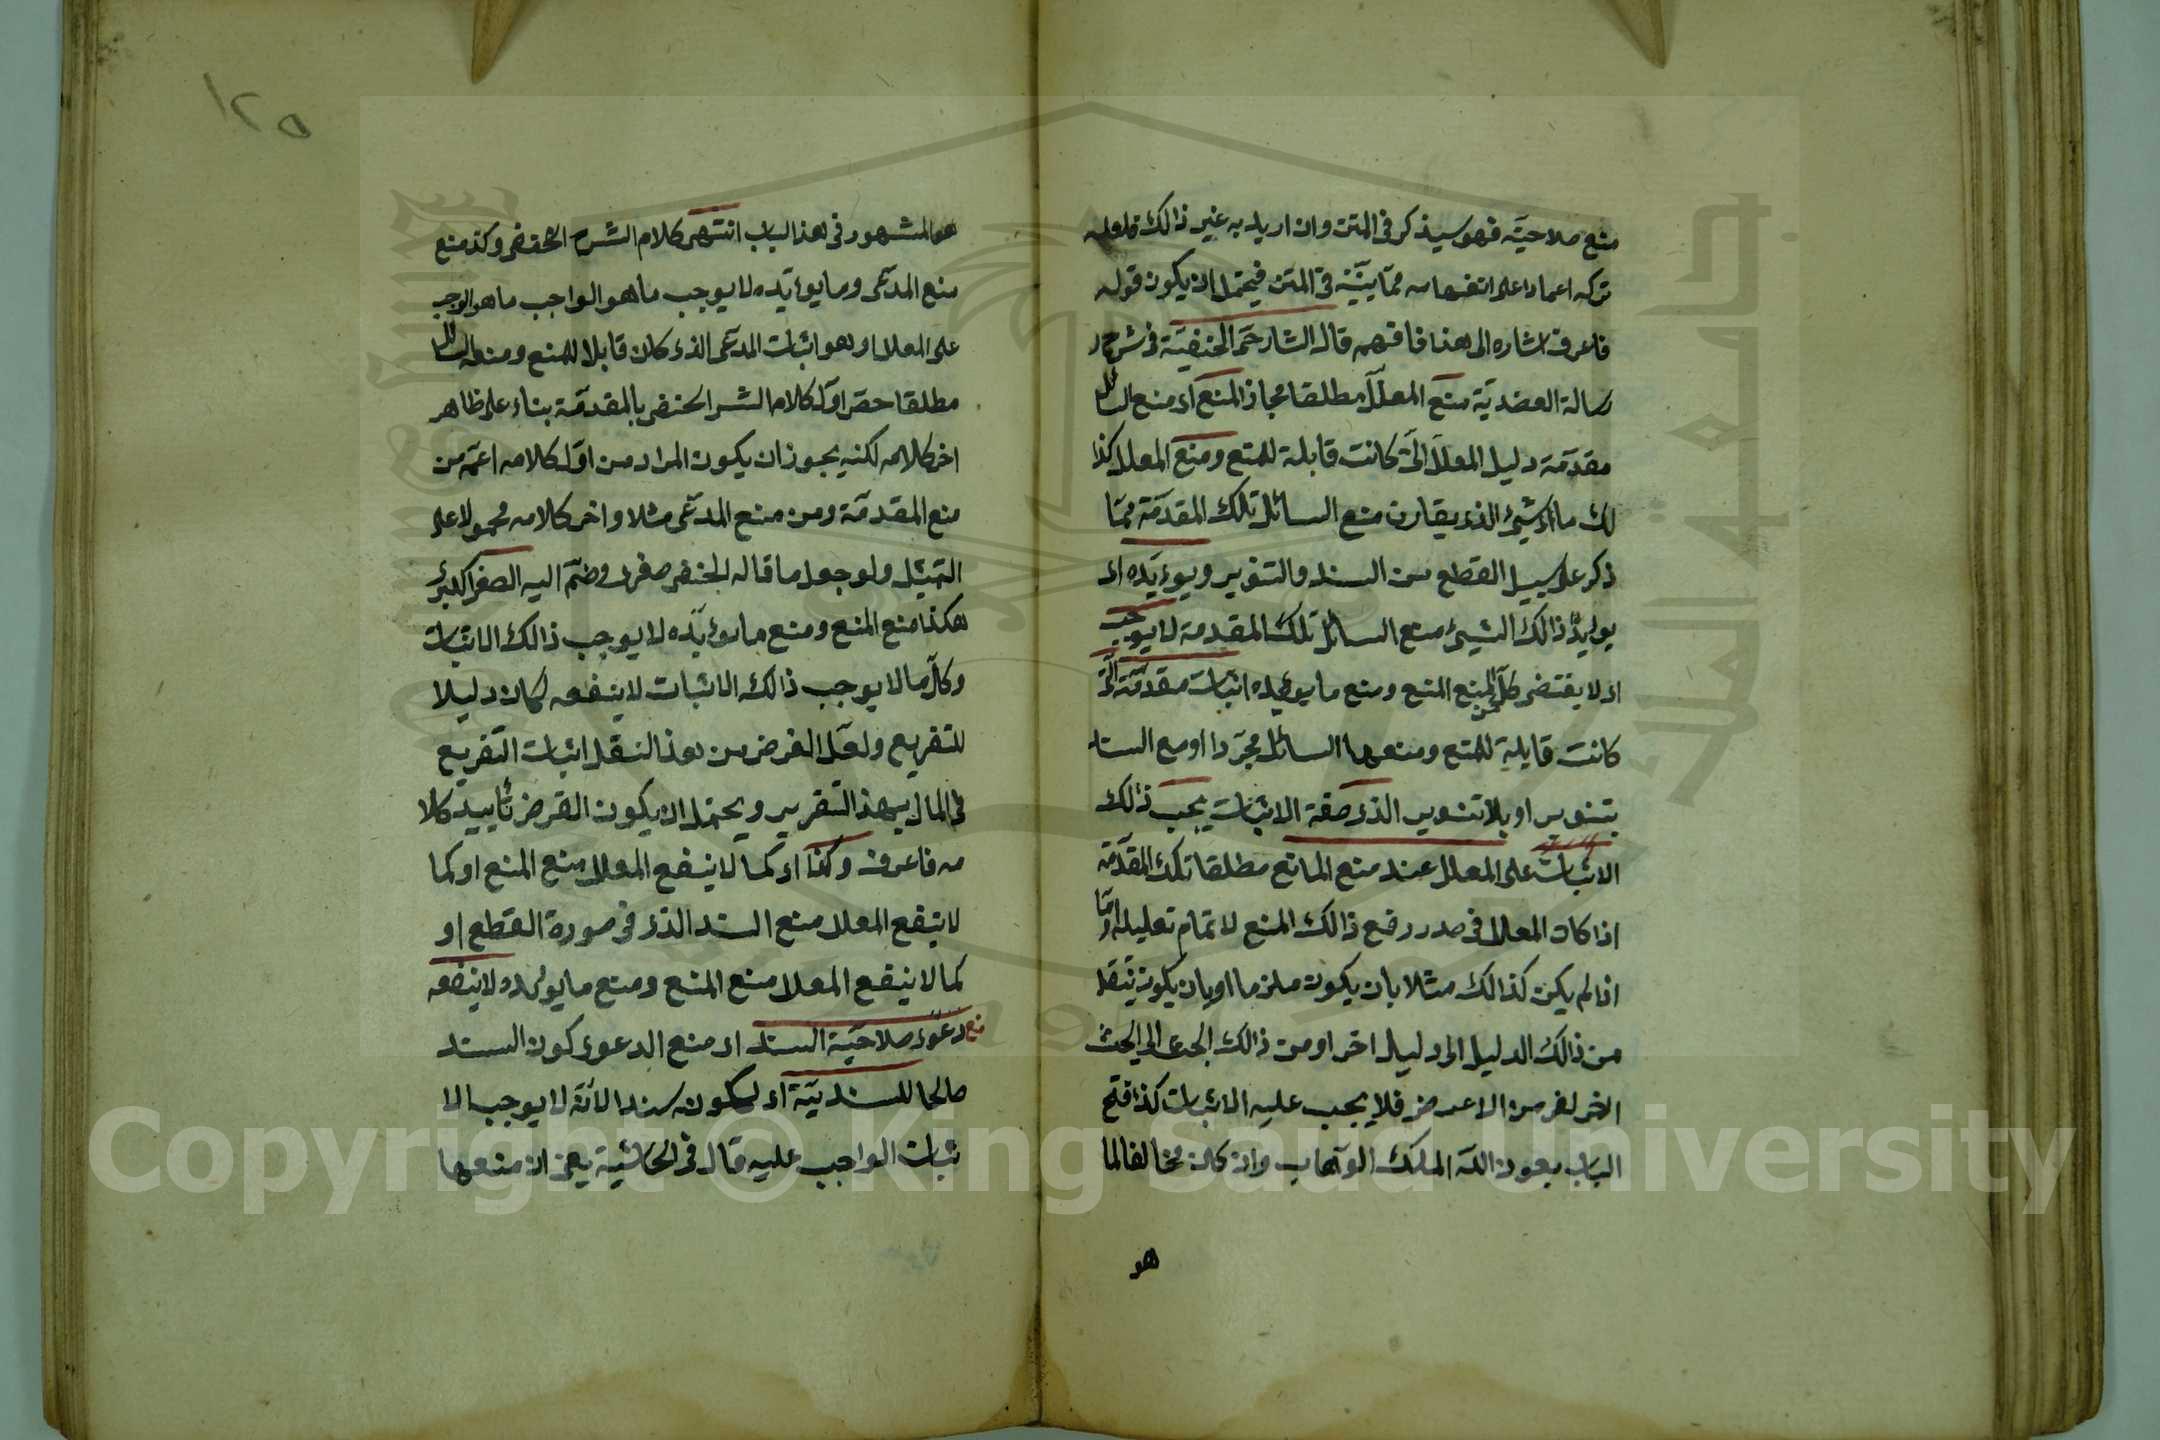 منع صلاحيته فهو سيذكر في المتن وان اريد به غير ذالك فلعله
تركه اعتمادا على انفهامه مما بينته في المتن فيحتمل ان يكون قوله
فاعرف اشاره الى هذا فافهم قال الشارحم الحنفية في شرح
رسالة العضدية منع المعلل مطلقا مجاز المنع اى منع السائل
مقدمة دليل المعلل التى كانت قابلة للمنع ومنع المعلل كذا
لك ما اى شيئ الذى يقارن منع السائل تلك المقدمة مما
ذكر على سبيل القطع من السند والتنوير ويؤيده اى
يؤيد ذالك الشيئ منع السائل تلك المقدمة لا يوجب
اى لا يقتضى كل من المنع المنع ومنع ما يؤيده اثبات مقدمة التى
كانت قابلية للمنع ومنعها السائل مجردا او مع السند
بتنوير او بلا تنوير الذى صفة الاثبات يجب ذلك
الاثبات على المعلل عند منع المانع مطلقا تلك المقدمة
اذا كان المعلل في صدر رفع ذالك المنع لا تمام تعليله واما
اذا لم يكن كذالك مثلا بان يكون ملزما او بان يكون ينتقل
من ذالك الدليل الى دليل اخر او من ذالك البحث الى البحث
الاخر لغرض من الاعراض فلا يجب عليه الاثبات كذا فتح
الباب بعون الله الملك الوهاب وان كان مخالفا لما
هو
١٢٥
هو المشهور في هذا الباب انتهى كلام الشرح الحنفى وكذ منع
منع المدعى وما يؤيده لا يوجب ما هو الواجب ما هو الوجب
على المعلل وهو اثبات المدعى الذى كان قابلا للمنع ومنعه السائل
مطلقا حصر اول كلام الشر الحنفى بالمقدمة بناء على ظاهر
اخر كلامه لكنه يجوز ان يكون المراد من اول كلامه اعم من
منع المقدمة ومن منع المدعى مثلا واخر كلامه محمولا على
التمثيل ولو جعل ما قاله الحنفى صغرى وضم اليه الصغرا كبرى
هكذا منع المنع ومنع ما يؤيده لا يوجب ذالك الاثبات
وكل ما لا يوجب ذالك الاثبات لا ينفعه لكان دليلا
للتفريع ولعل الغرض من هذا النقل اثبات التفريع
في المال بهذا التقرير ويحتمل ان يكون الغرض تأييد كلا
مه فاعرف وكذا اى كما لا ينفع المعلل منع المنع او كما
لا ينفع المعلل منع السند الذى في صورة القطع او
كما لا ينفع المعلل منع المنع ومنع ما يؤيده لا ينفعه
منع دعوى صلاحية السند اى منع الدعوى كون السند
صالحا للسندية اى لكونه سندا لانه لا يوجب الا
ثبات الواجب عليه قال في الحاشية يعنى ان منعها
Copyright © King Saud University